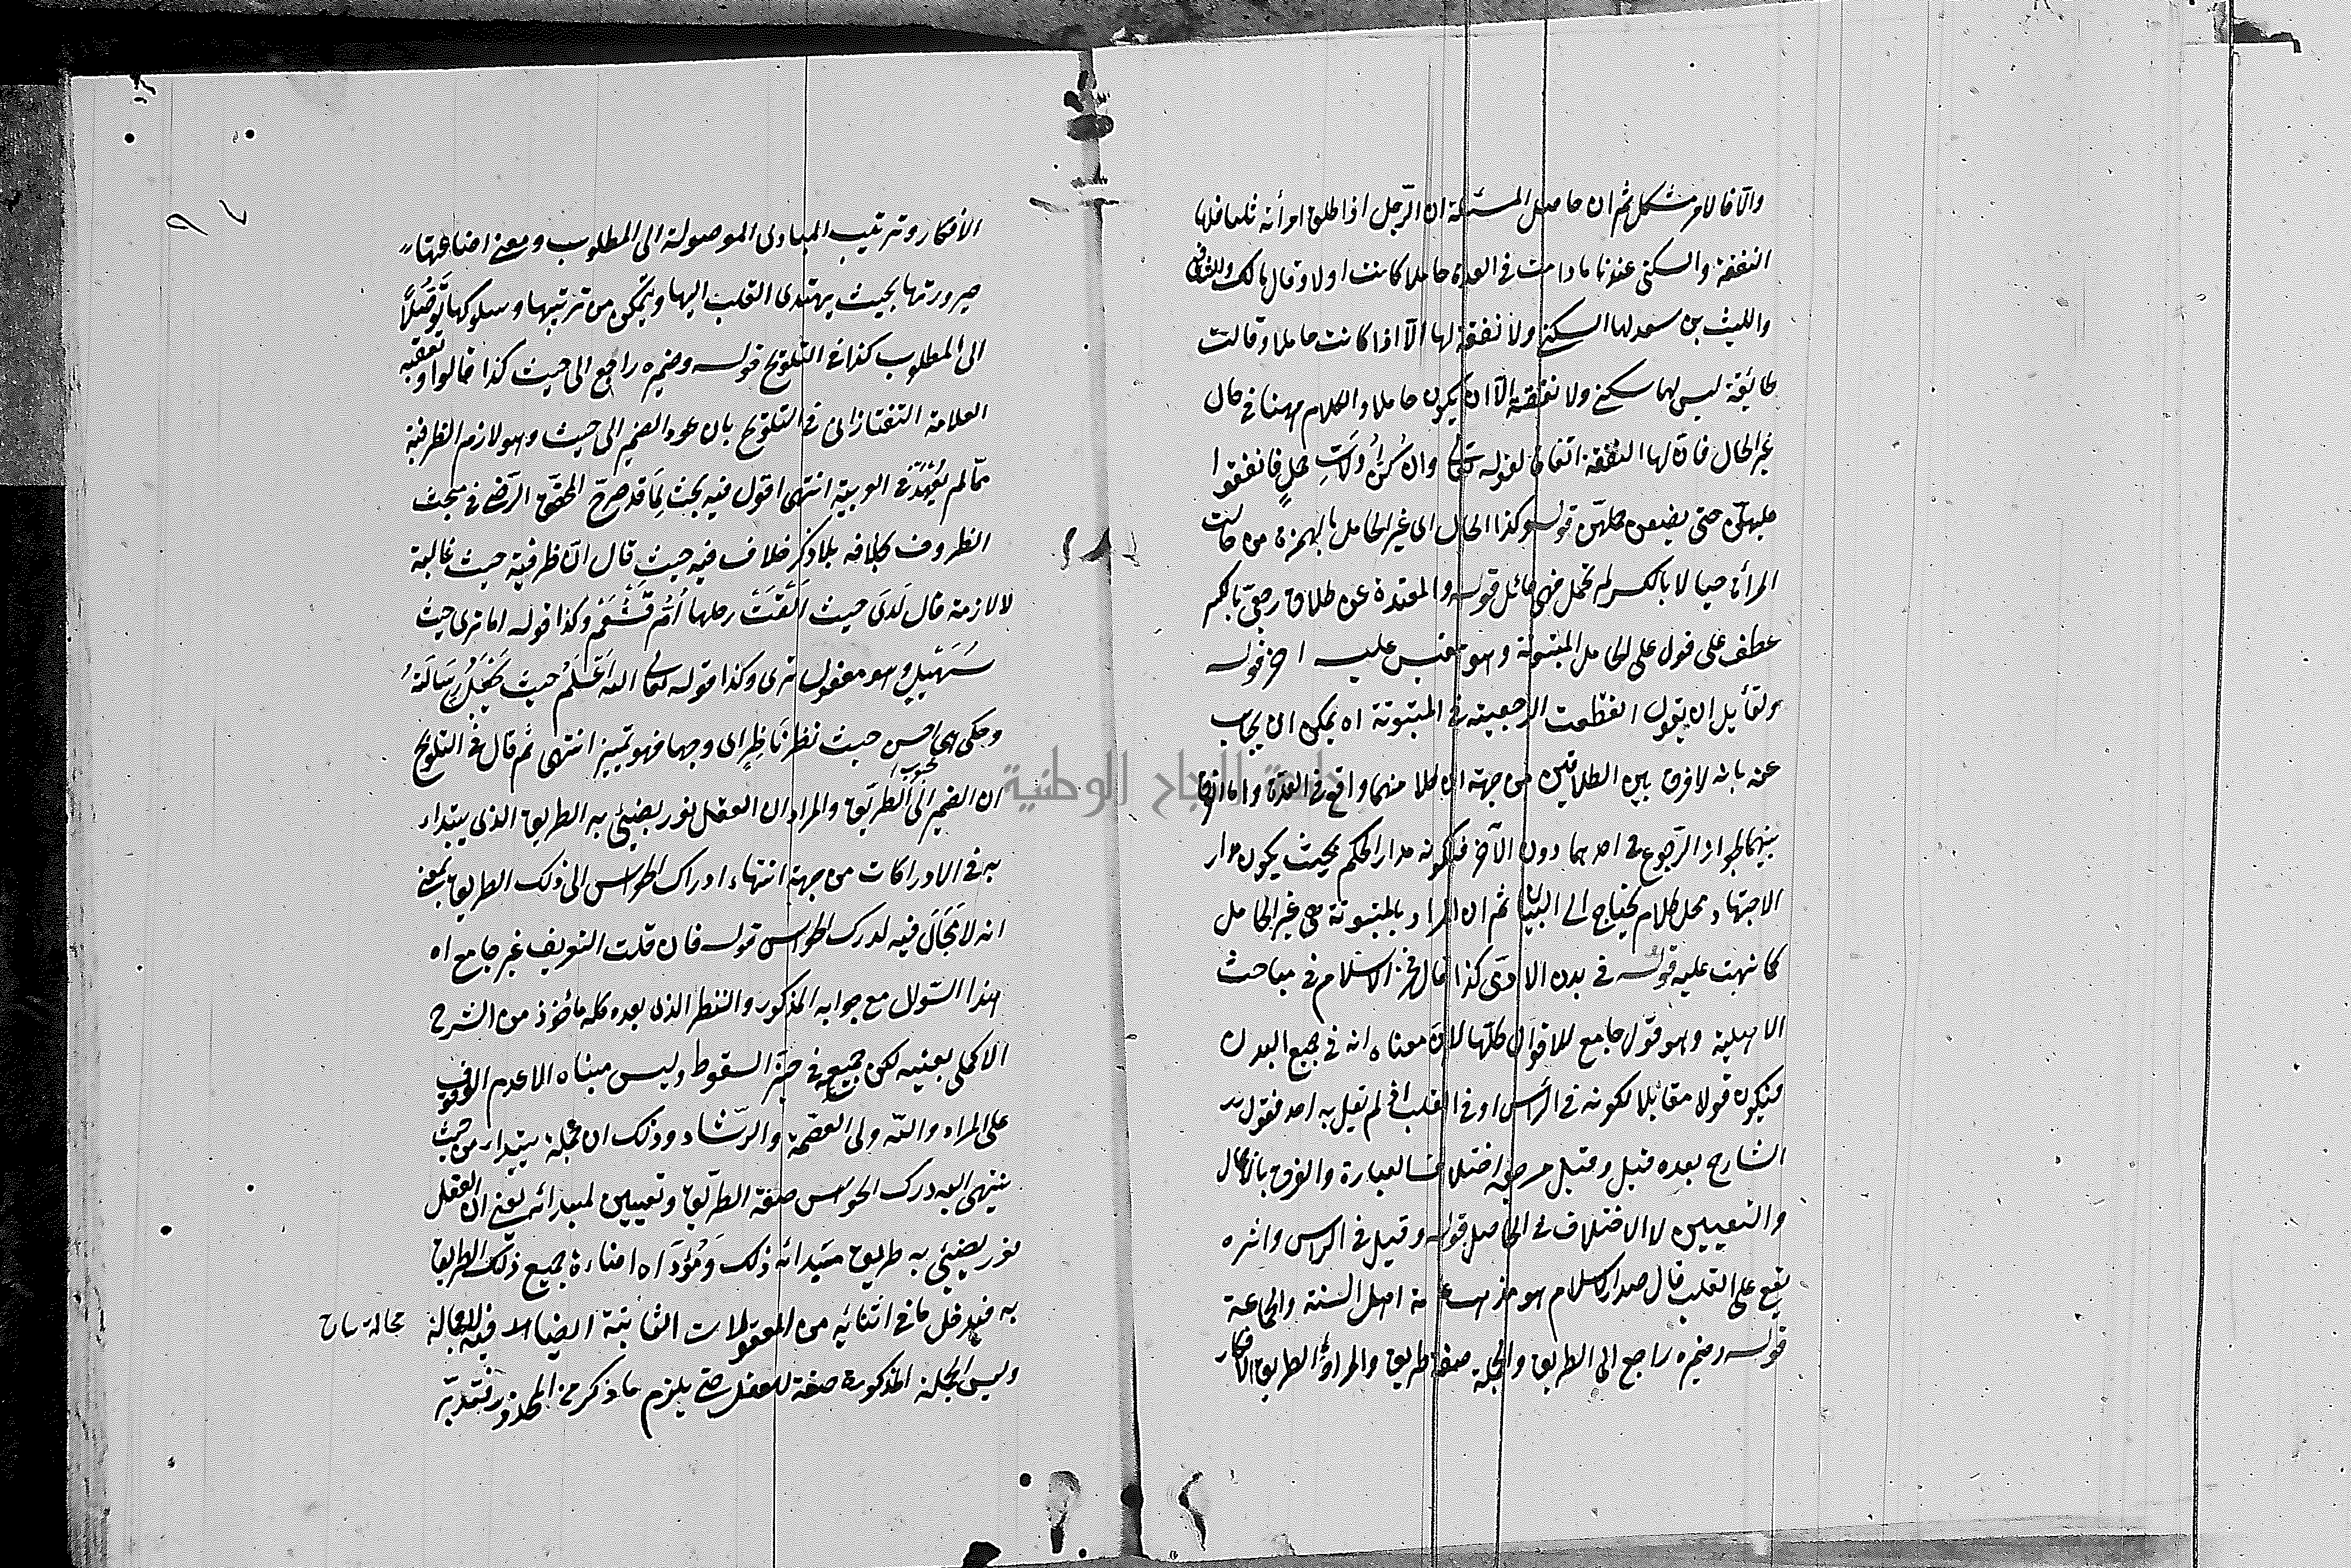 والا فالامر مشكل ثم ان حاصل المسئلة ان الرّجل اذا طلق امرأته ثلثا فلها
النفقة والسكنى عندنا ما دامت فى العدة حاملا كانت او لا وقال مالك والشافعى
والليث بن سعد لها السكنى ولا نفقة لها الّا اذا كانت حاملا وقالت
طائفة ليس لها سكنى ولا نفقة الّا ان يكون حاملا والكلام ههنا فى حال
غير الحال فان لها النفقة اتفاقا لقوله تعالى وان كُنَّ أُولاتِ حملٍ فانفقوا
عليهنّ حتى يضعن حملهنّ قوله وكذا الحال اى غير الحامل بالهمزة من حالت
المرأة حيالا بالكسر لم تحمل فهى حائل قوله والمعتدة عن طلاق رجعى بالكسر
عطف على قول على الحامل المبتوتة وهو مقيس عليه اخر قوله
ولقائل ان يقول انقطعت الرجعية فى المبتوتة اه يمكن ان يجاب
عنه بانه لا فرق بين الطلاقين من جهة ان كلا منهما واقع فى العدة واما الفرق
بينهما لجواز الرّجوع فى احدهما دون الآخر فكونه مدار الحكم بحيث يكون مدار
الاجتهاد محل كلام يحتاج الى البيان ثم ان المراد بالمبتوتة هى غير الحامل
كما نبهت عليه قوله فى بدن الادمى كذا قال فخر الاسلام فى مباحث
الاهلية وهو قول جامع للاقوال كلها لان معناه انه فى جميع البدن
فيكون قولا مقابلا لكونه فى الرأس او فى القلب اذ لم يقل به احد فقول
الشارح بعده قيل وقيل مرجعه اختلاف العبارة والفرق بالاجمال
والتعيين لا الاختلاف فى الحاصل قوله وقيل فى الراس واثره
يقع على القلب قال صدر الاسلام هو مذهب عامة اهل السنة والجماعة
قوله وضميره راجع الى الطريق والجملة صفة طريق والمراد بالطريق الافكار
الأفكار وترتيب المبادى الموصولة الى المطلوب ومعنى اضاءتها
صيرورتها بحيث يهتدى القلب اليها ويتمكن من ترتيبها وسلوكها تَوَصُّلًا
الى المطلوب كذا فى التلويح قوله وضميره راجع الى حيث كذا قالوا وتعقبه
العلامة التفتازانى فى التلويح بان عود الضمير الى حيث وهو لازم الظرفية
ممّا لم يُعْهَد فى العربية انتهى اقول فيه بحث لِمَا قد صرح المحقق الرّضى فى مبحث
الظروف بخلافه بلا ذكر خلاف فيه حيث قال ان ظرفية حيث غالبة
لا لازمة قال لَدَى حيث اَلْقَتْ رحلها اُمُّ قَشْعَمِ وكذا قوله اما ترى حيث
سُهَيْلٍ وهو مفعول ترى وكذا قوله تعالى اللّه اَعْلَمُ حيث يَجْعَلُ رِسَالَتَهُ
وحكى هى احسن حيث نظر نَاظِرٍ اى وجها فهو تمييز انتهى ثم قال فى التلويح
ان الضمير الى الطريق والمراد ان العقل نور يضيئ به الطريق الذى يبتدا
به فى الادراكات من جهة انتهاء ادراك الحواس الى ذلك الطريق بمعنى
انه لا مَجَالَ فيه لدرك الحواس قوله فان قلت التعريف غير جامع اه
هذا السّؤال مع جوابه المذكور والنظر الذى بعده كله مأخوذ من الشرح
الاكملى بعينه لكن جميعه فى حيّز السقوط وليس مبناه الا عدم الوقوف
على المراد واللّه ولى العصمة والرّشاد وذلك ان جملة يبتدا من حيث
ينتهى اليه درك الحواس صفة الطّريق وتعيين لمبدائه يعنى ان العقل
نور يضيئ به طريق مبتدائه ذلك وَمُؤدَاه اضاءة جميع ذلك الطريق
به فيدخل ما فى اثنائه من المعقولات الثانية ايضا اه فيه لا محالة
ولیس الجملة المذكورة صفة للعقل حتى يلزم ما ذكر من المحذور فتدبّر